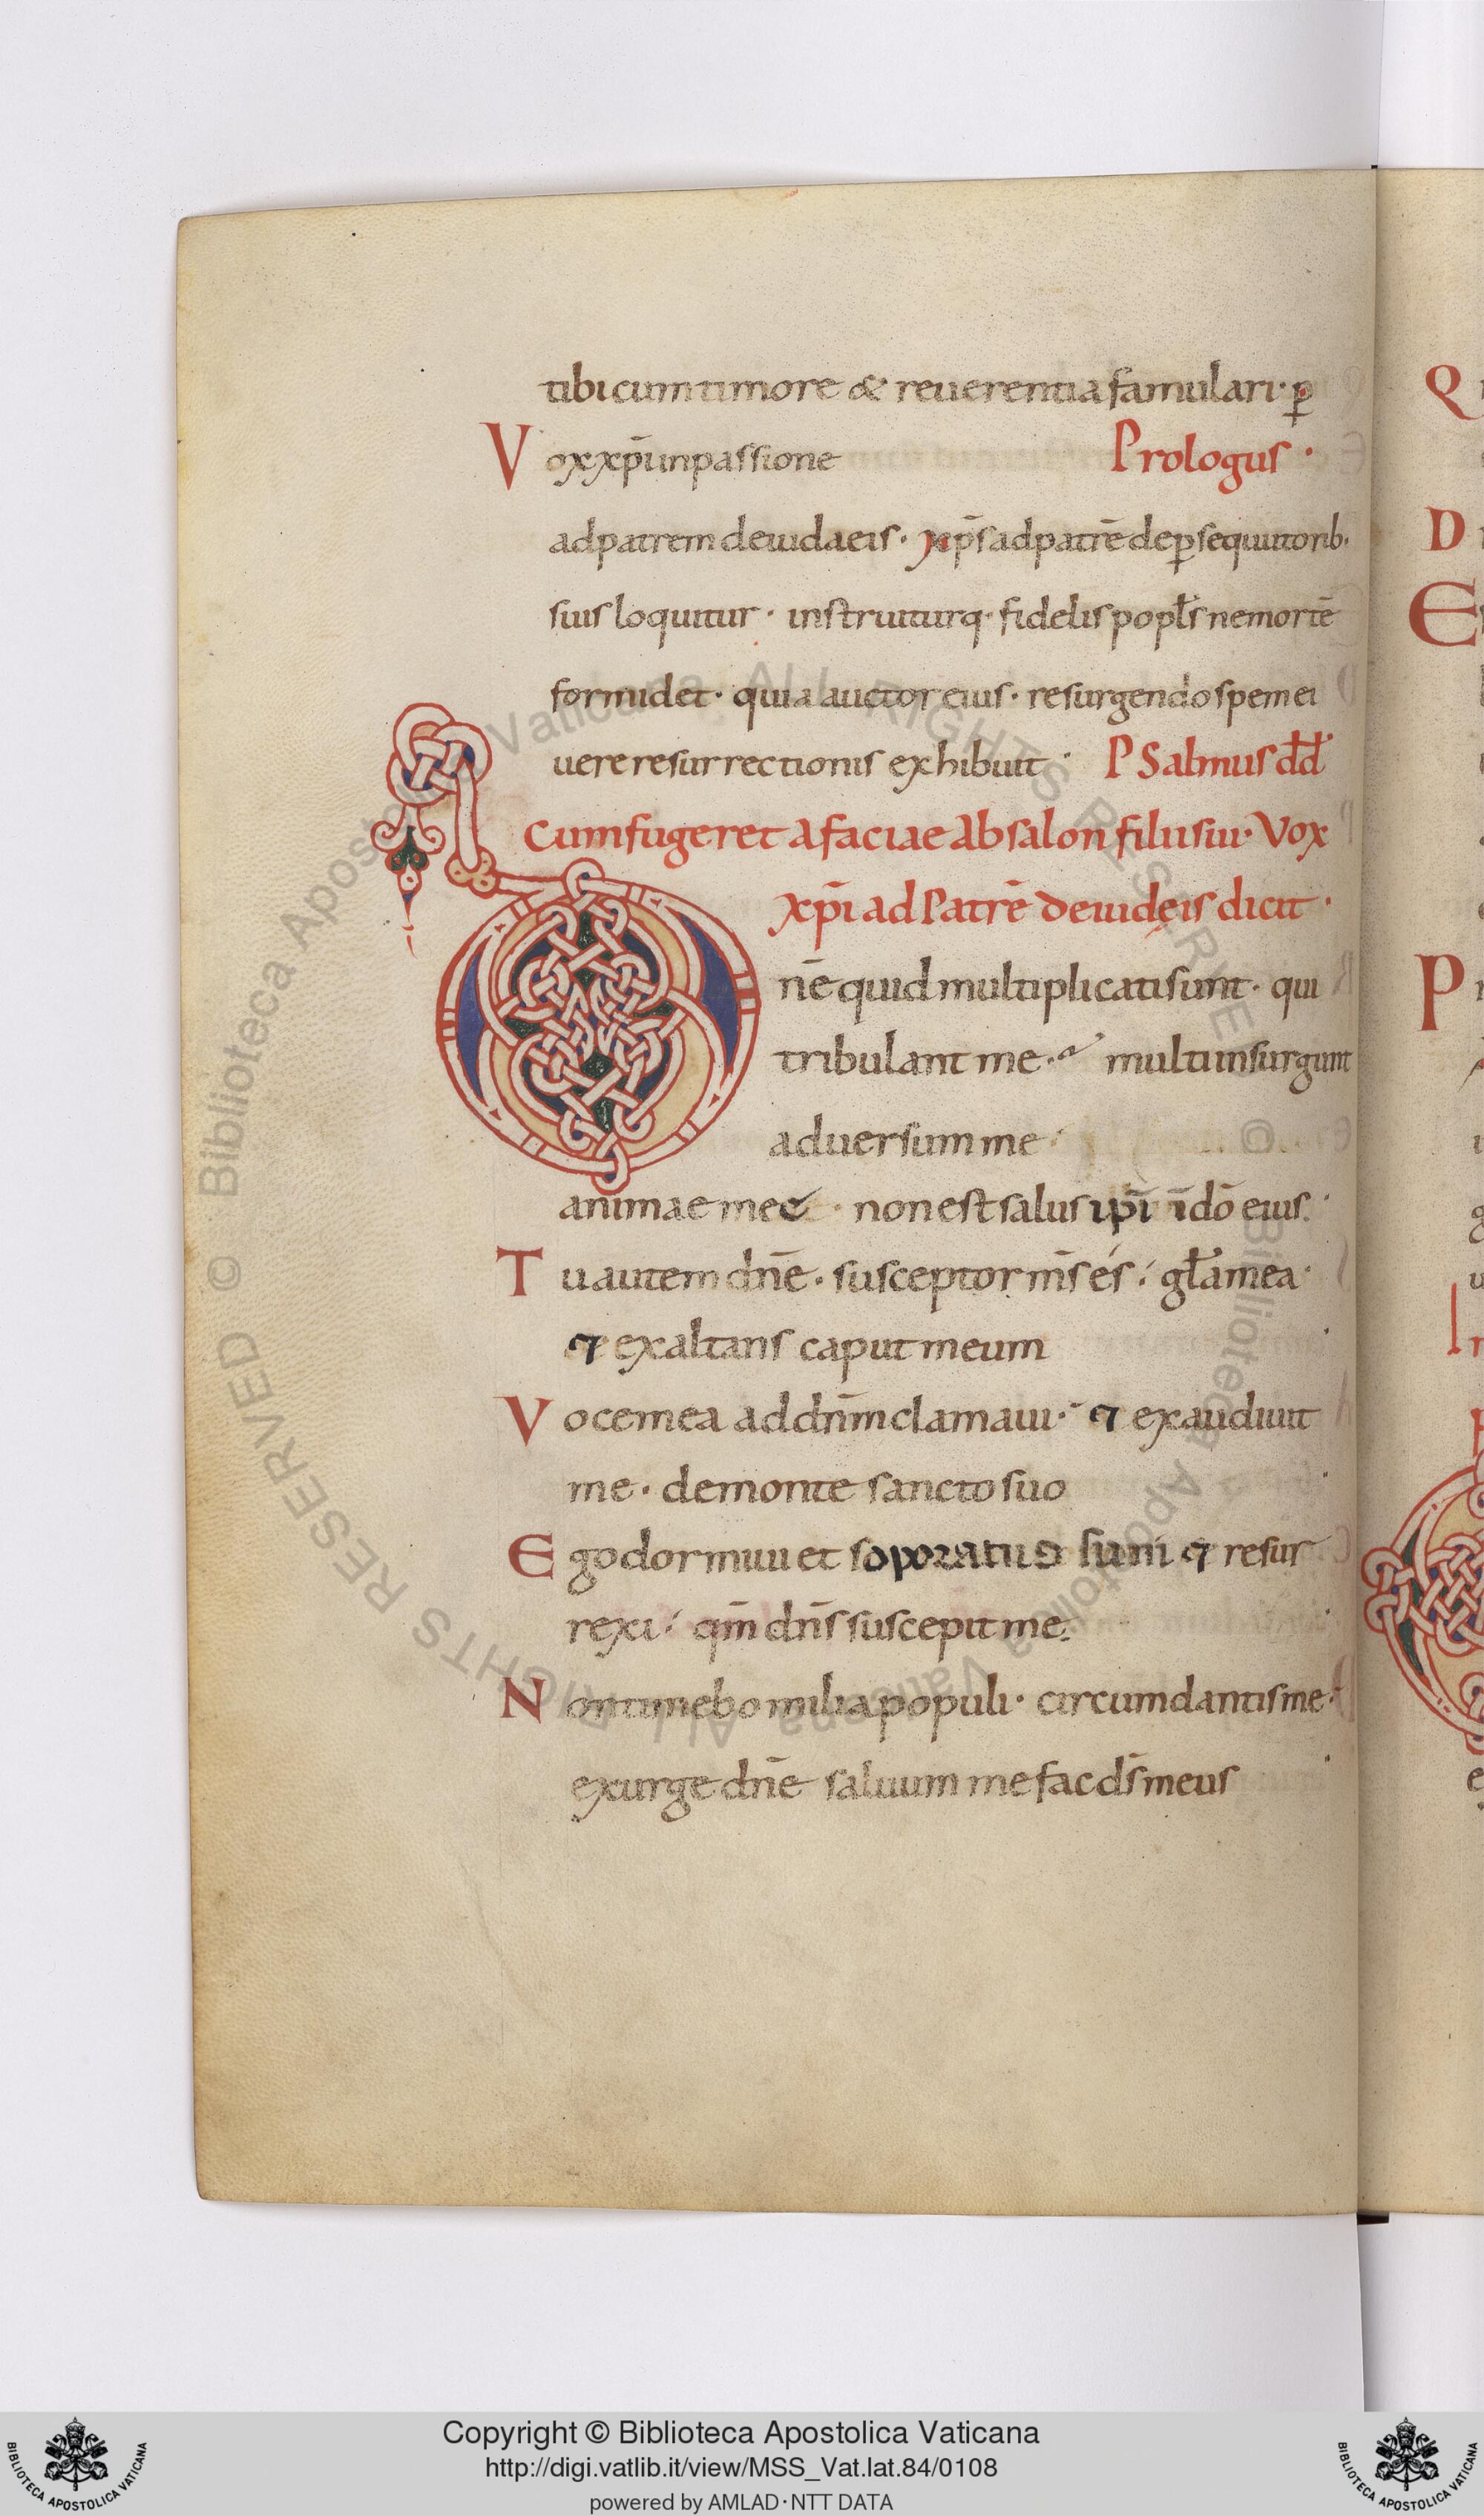 tibi cum timore & reuerentia famulari· p̱
Vox xp̄i in passione Prologus ·
ad patrem de iudaeis · xp̄s ad patrē de ꝑsequutorib·
suis loquitur · instruiturq· fidelis popl̄s ne mortē
formidet · quia auctor eius · resurgendo spem ei
uere resurrectionis exhibuit · PSalmus dd̄
Cum fugeret a faciae Absalon filii sui· Vox
xp̄i ad Patrē de iudęis dicit ·
Dn̄e quid multiplicati sunt · qui
tribulant me · multi insurgunt
aduersum me
animae meę · non est salus ipī ī dō eius ·
Tu autem dn̄e · susceptor m̄s és · gl̄a mea ·
⁊ exaltans caput meum
Voce mea ad dn̄m clamaui · ⁊ exaudiuit
me · de monte sancto suo
Ego dormiui et soporatus sum ⁊ resur
rexi · qm̄ dn̄s suscepit me
Non timebo milia populi · circumdantis me ·
exurge dn̄e saluum me fac ds̄ meus
Q
D
E
P
Copyright © Biblioteca Apostolica Vaticana
http://digi.vatlib.it/view/MSS_Vat.lat.84/0108
powered by AMLAD·NTT DATA
BIBLIOTECA APOSTOLICA VATICANA
BIBLIOTECA APOSTOLICA VATICANA
© Biblioteca Apostolica Vaticana ALL RIGHTS RESERVED
© Biblioteca Apostolica Vaticana ALL RIGHTS RESERVED